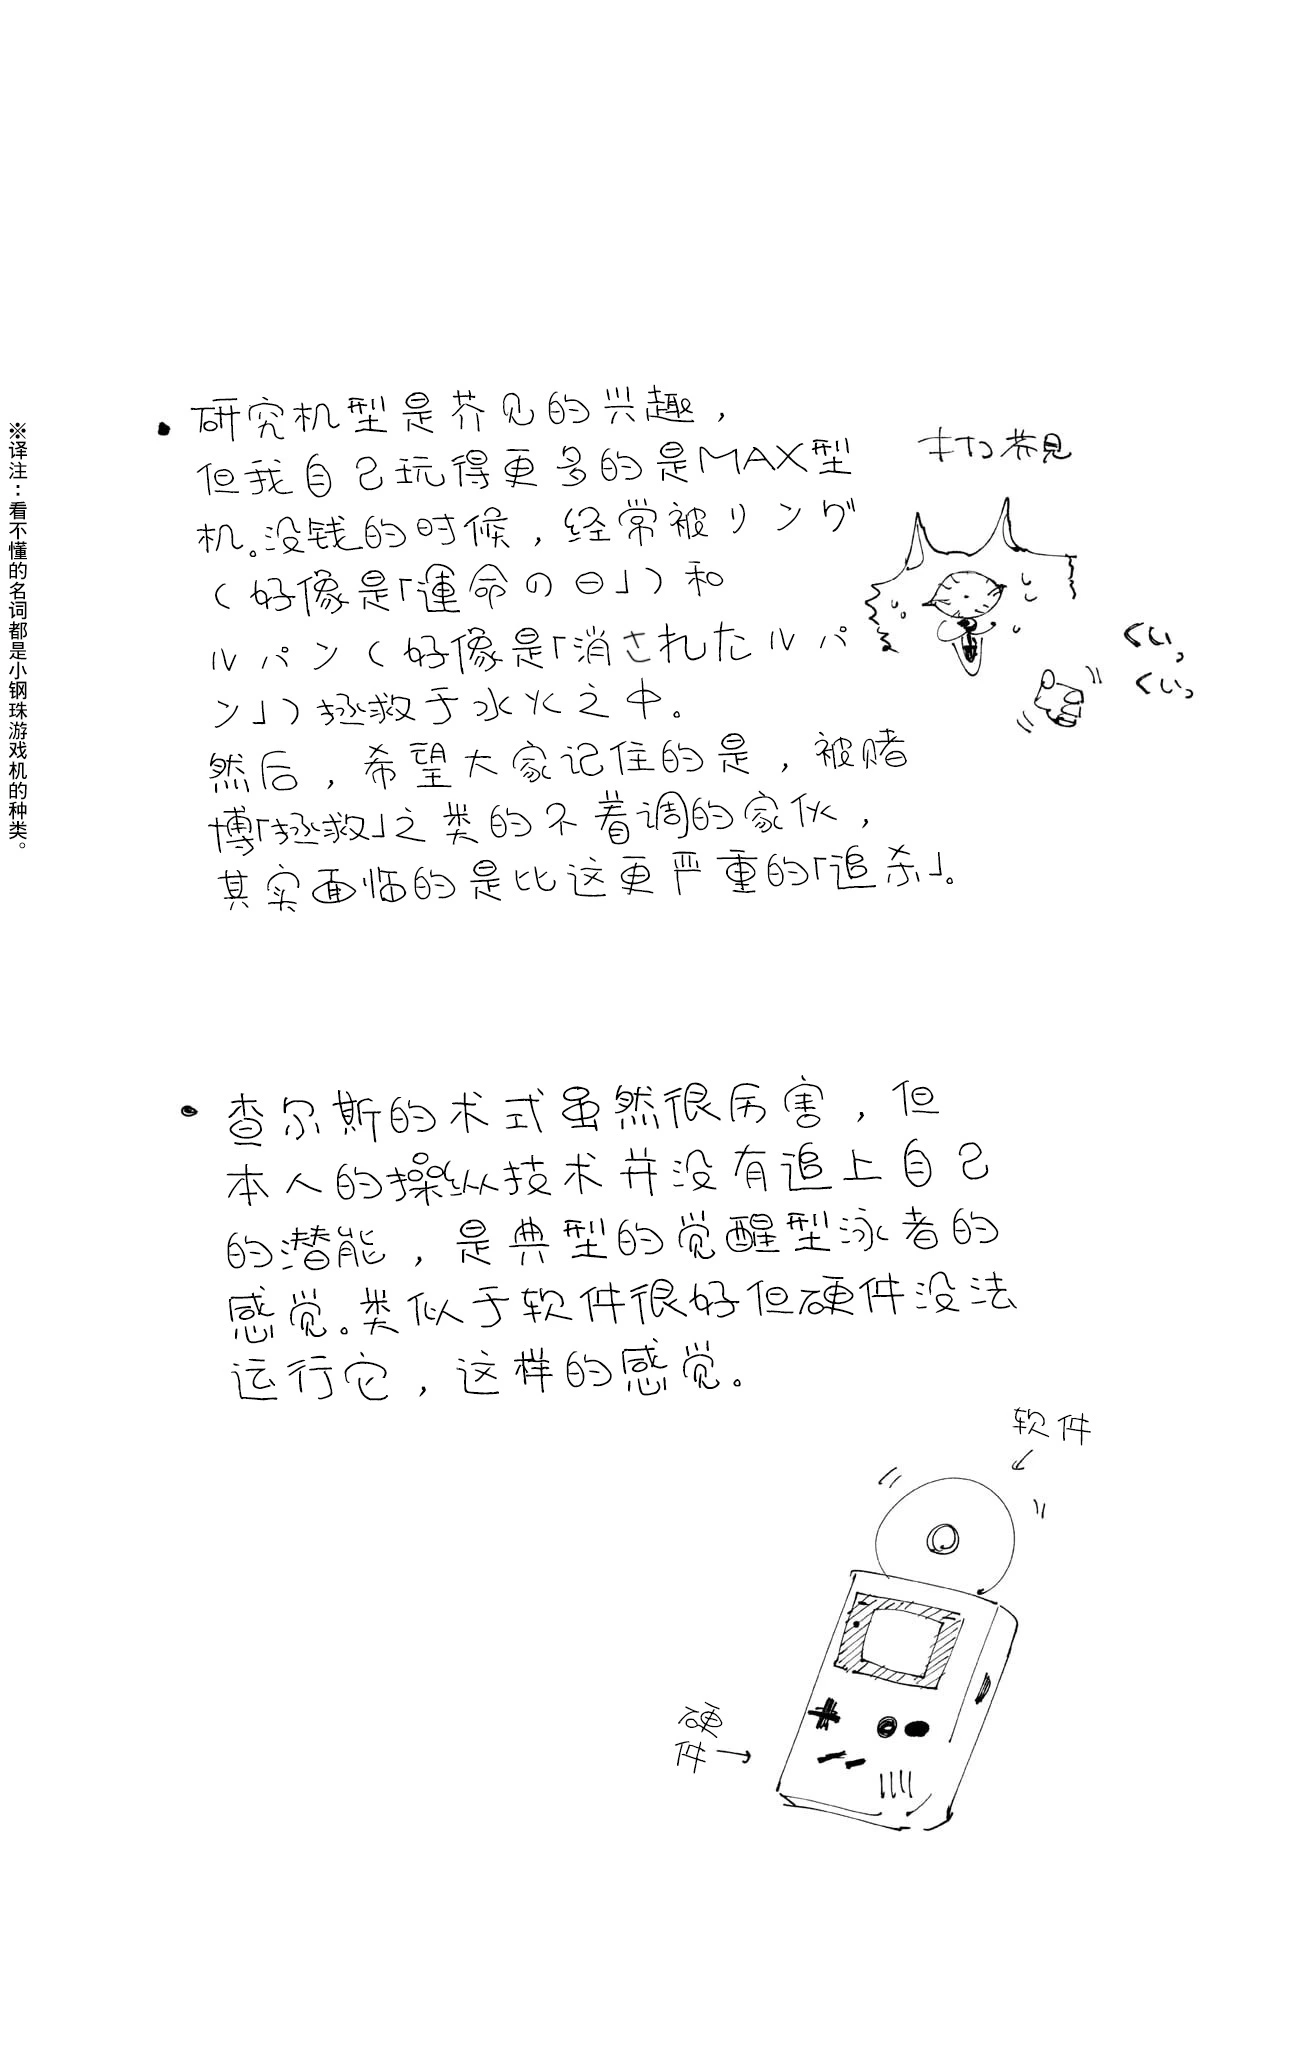 ※译注：看不懂的名词都是小钢珠游戏机的种类。
研究机型是芥见的兴趣，
但我自己玩得更多的是MAX型
机。没钱的时候，经常被リング
（好像是「運命の日」）和
ルパン（好像是「消されたルパ
ン」）拯救于水火之中。
然后，希望大家记住的是，被赌
博「拯救」之类的不着调的家伙，
其实面临的是比这更严重的「追杀」。
芥見
くいっ
くいっ
查尔斯的术式虽然很厉害，但
本人的操纵技术并没有追上自己
的潜能，是典型的觉醒型泳者的
感觉。类似于软件很好但硬件没法
运行它，这样的感觉。
软件
硬
件